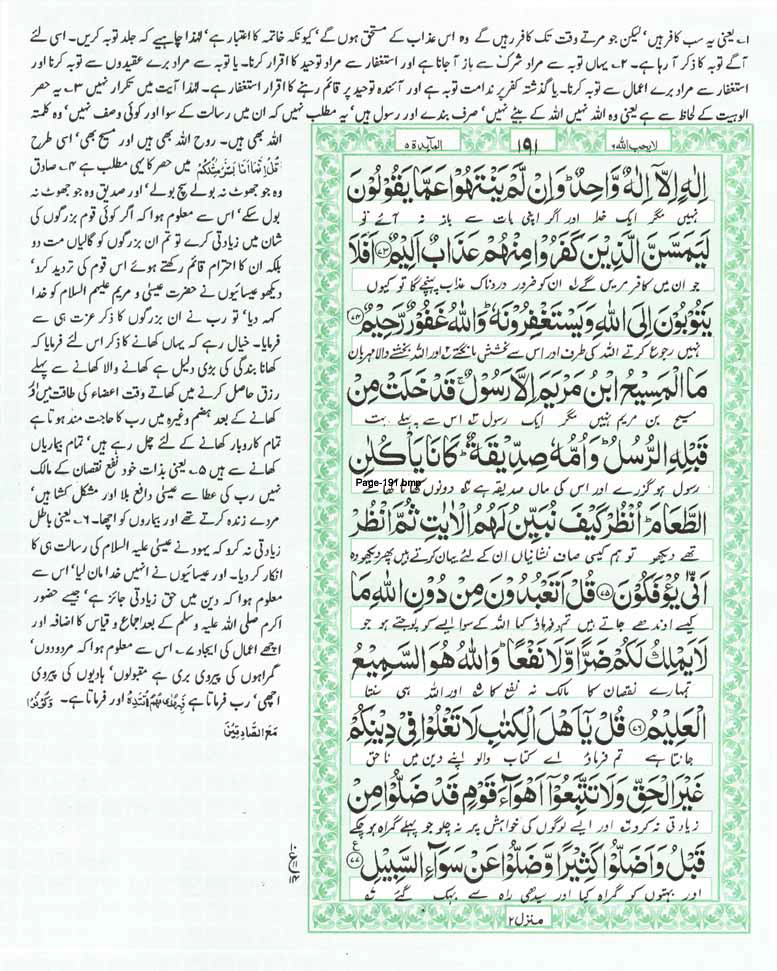 ۱۔ یعنی یہ سب کافر ہیں‘ لیکن جو مرتے وقت تک کافر رہیں گے وہ اس عذاب کے مستحق ہوں گے‘ کیونکہ خاتمہ کا اعتبار ہے‘ لہٰذا چاہیے کہ جلد توبہ کریں۔ اسی لئے
آگے توبہ کا ذکر آ رہا ہے۔ ۲۔ یہاں توبہ سے مراد شرک سے باز آ جانا ہے اور استغفار سے مراد توحید کا اقرار کرنا۔ یا توبہ سے مراد برے عقیدوں سے توبہ کرنا اور
استغفار سے مراد برے اعمال سے توبہ کرنا۔ یا گذشتہ کفر پر ندامت توبہ ہے اور آئندہ توحید پر قائم رہنے کا اقرار استغفار ہے۔ لہٰذا آیت میں تکرار نہیں ۳۔ یہ حصر
الوہیت کے لحاظ سے ہے یعنی وہ اللہ نہیں اللہ کے بیٹے نہیں‘ صرف بندے اور رسول ہیں‘ یہ مطلب نہیں کہ ان میں رسالت کے سوا اور کوئی وصف نہیں‘ وہ کلمتہ
اللہ بھی ہیں۔ روح اللہ بھی ہیں اور مسیح بھی‘ اسی طرح
قُلْ اِنَّمَا اَنَا بَشَرٌ مِّثْلُكُمْ میں حصر کا یہی مطلب ہے ۴۔ صادق
وہ جو جھوٹ نہ بولے سچ بولے‘ اور صدیق وہ جو جھوٹ نہ
بول سکے‘ اس سے معلوم ہوا کہ اگر کوئی قوم بزرگوں کی
شان میں زیادتی کرے تو تم ان بزرگوں کو گالیاں مت دو
بلکہ ان کا احترام قائم رکھتے ہوئے اس قوم کی تردید کرو‘
دیکھو عیسائیوں نے حضرت عیسیٰ و مریم علیہم السلام کو خدا
کہہ دیا‘ تو رب نے ان بزرگوں کا ذکر عزت ہی سے
فرمایا۔ خیال رہے کہ یہاں کھانے کا ذکر اس لئے فرمایا کہ
کھانا بندگی کی بڑی دلیل ہے کھانے والا کھانے سے پہلے
رزق حاصل کرنے میں کھاتے وقت اعضاء کی طاقت میں اور
کھانے کے بعد ہضم وغیرہ میں رب کا حاجت مند ہوتا ہے
تمام کاروبار کھانے کے لئے چل رہے ہیں‘ تمام بیماریاں
کھانے سے ہیں ۵۔ یعنی بذات خود نفع نقصان کے مالک
نہیں رب کی عطا سے عیسیٰ دافع بلا اور مشکل کشا ہیں‘
مردے زندہ کرتے تھے اور بیماروں کو اچھا۔ ۶۔ یعنی باطل
زیادتی نہ کرو کہ یہود نے عیسیٰ علیہ السلام کی رسالت ہی کا
انکار کر دیا۔ اور عیسائیوں نے انہیں خدا مان لیا‘ اس سے
معلوم ہوا کہ دین میں حق زیادتی جائز ہے‘ جیسے حضور
اکرم صلی اللہ علیہ وسلم کے بعد اجماع و قیاس کا اضافہ اور
اچھے اعمال کی ایجاد ۷۔ اس سے معلوم ہوا کہ مردودوں‘
گمراہوں کی پیروی بری ہے مقبولوں‘ ہادیوں کی پیروی
اچھی‘ رب فرماتا ہے فَبِهُدٰىهُمُ اقْتَدِهْ اور فرماتا ہے۔ وَكُوْنُوْا
مَعَ الصّٰدِقِيْنَ
لایحب اللہ ۶
۱۹۱
المآئدۃ ۵
اِلٰهٍ اِلَّاۤ اِلٰهٌ وَّاحِدٌ ؕ وَاِنْ لَّمْ يَنْتَهُوْا عَمَّا يَقُوْلُوْنَ
نہیں مگر ایک خدا اور اگر اپنی بات سے باز نہ آئے تو
لَيَمَسَّنَّ الَّذِيْنَ كَفَرُوْا مِنْهُمْ عَذَابٌ اَلِيْمٌ ﴿۷۳﴾ اَفَلَا
جو ان میں کافر مریں گے ۱ ان کو ضرور دردناک عذاب پہنچے گا تو کیوں
يَتُوْبُوْنَ اِلَى اللّٰهِ وَيَسْتَغْفِرُوْنَهٗ ؕ وَاللّٰهُ غَفُوْرٌ رَّحِيْمٌ ﴿۷۴﴾
نہیں رجوع کرتے اللہ کی طرف اور اس سے بخشش مانگتے ۲ اور اللہ بخشنے والا مہربان
مَا الْمَسِيْحُ ابْنُ مَرْيَمَ اِلَّا رَسُوْلٌ ۚ قَدْ خَلَتْ مِنْ
مسیح بن مریم نہیں مگر ایک رسول ۳ اس سے پہلے بہت
قَبْلِهِ الرُّسُلُ ؕ وَاُمُّهٗ صِدِّيْقَةٌ ؕ كَانَا يَاْكُلٰنِ
Page-191.bmp
رسول ہو گزرے اور اس کی ماں صدیقہ ہے ۴ دونوں کھانا کھاتے
الطَّعَامَ ؕ اُنْظُرْ كَيْفَ نُبَيِّنُ لَهُمُ الْاٰيٰتِ ثُمَّ انْظُرْ
تھے دیکھو تو ہم کیسی صاف نشانیاں ان کے لئے بیان کرتے ہیں پھر دیکھو وہ
اَنّٰى يُؤْفَكُوْنَ ﴿۷۵﴾ قُلْ اَتَعْبُدُوْنَ مِنْ دُوْنِ اللّٰهِ مَا
کیسے اوندھے جاتے ہیں تم فرماؤ کیا اللہ کے سوا ایسے کو پوجتے ہو جو
لَا يَمْلِكُ لَكُمْ ضَرًّا وَّلَا نَفْعًا ؕ وَاللّٰهُ هُوَ السَّمِيْعُ
تمہارے نقصان کا مالک نہ نفع کا ۵ اور اللہ ہی سنتا
الْعَلِيْمُ ﴿۷۶﴾ قُلْ يٰۤاَهْلَ الْكِتٰبِ لَا تَغْلُوْا فِيْ دِيْنِكُمْ
جانتا ہے تم فرماؤ اے کتاب والو اپنے دین میں ناحق
غَيْرَ الْحَقِّ وَلَا تَتَّبِعُوْۤا اَهْوَآءَ قَوْمٍ قَدْ ضَلُّوْا مِنْ
زیادتی نہ کرو ۶ اور ایسے لوگوں کی خواہش پر نہ چلو جو پہلے گمراہ ہو چکے
قَبْلُ وَاَضَلُّوْا كَثِيْرًا وَّضَلُّوْا عَنْ سَوَآءِ السَّبِيْلِ ﴿۷۷﴾ ع
اور بہتوں کو گمراہ کیا اور سیدھی راہ سے بہک گئے ۷
منزل ۲